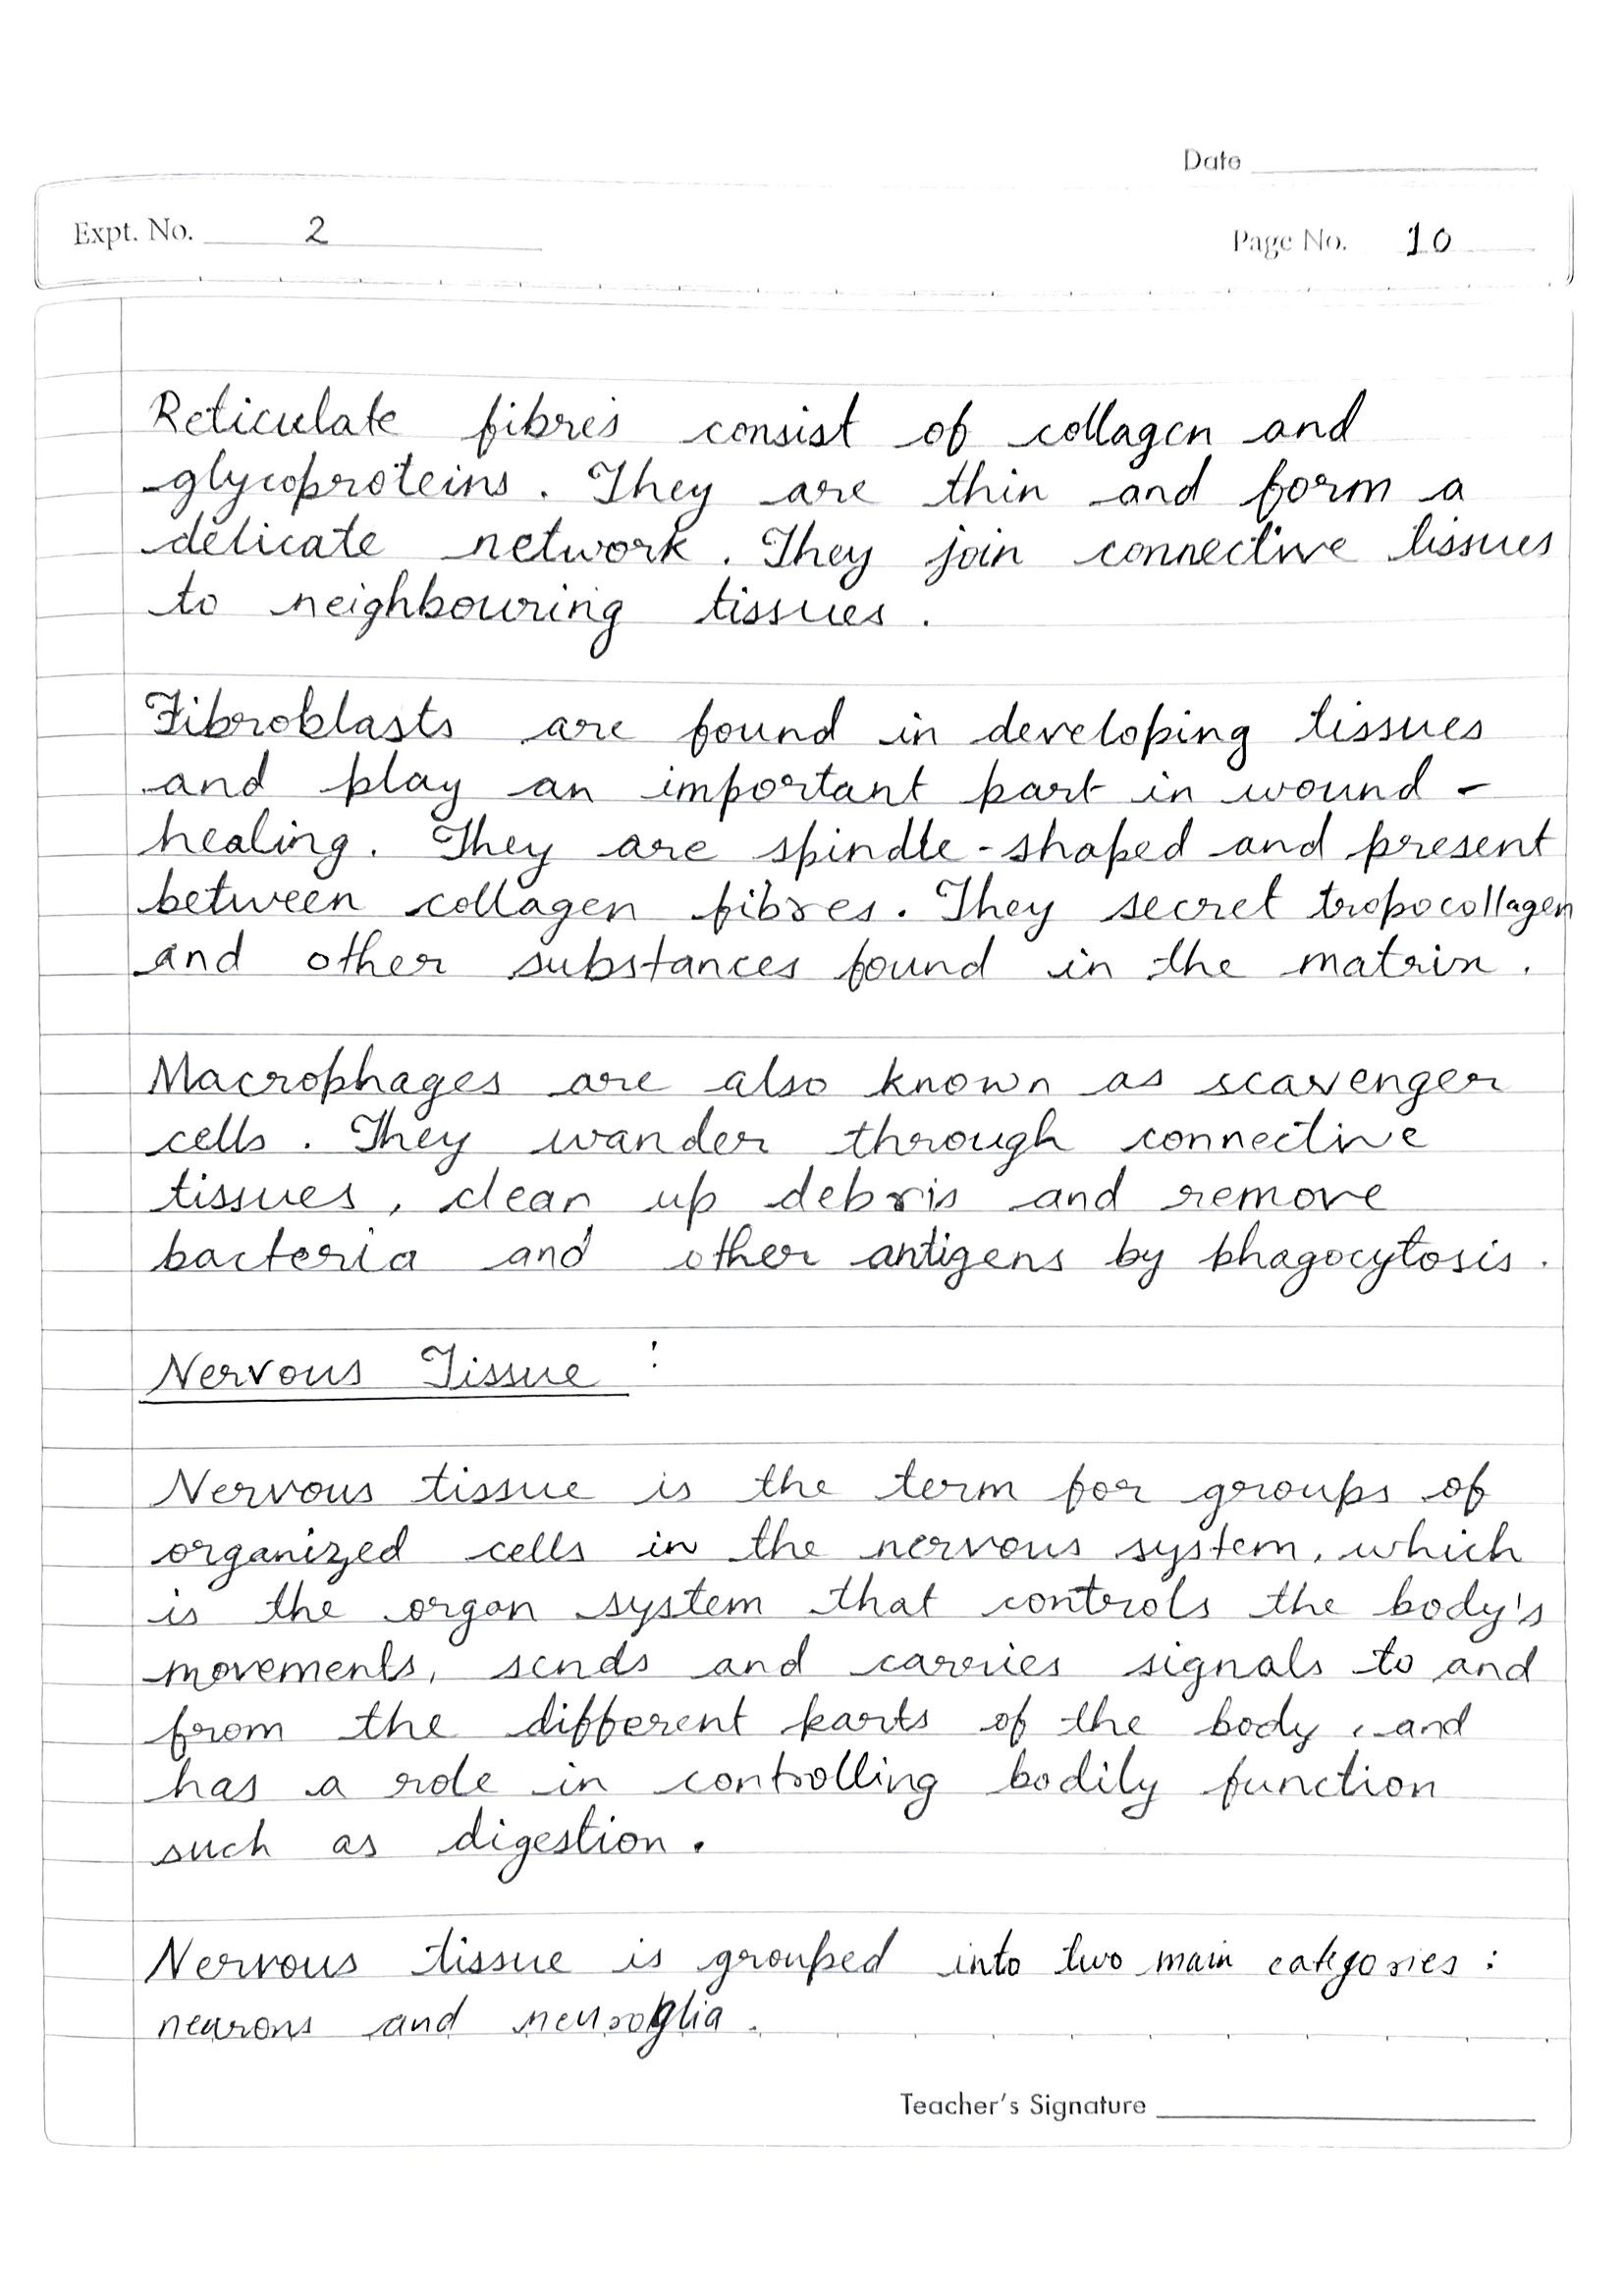 Date
Expt. No. 2
Page No. 10
Reticulate fibres consist of collagen and
glycoproteins. They are thin and form a
delicate network. They join connective tissues
to neighbouring tissues.
Fibroblasts are found in developing tissues
and play an important part in wound -
healing. They are spindle-shaped and present
between collagen fibres. They secret tropocollagen
and other substances found in the matrix.
Macrophages are also known as scavenger
cells. They wander through connective
tissues, clean up debris and remove
bacteria and other antigens by phagocytosis.
Nervous Tissue :
Nervous tissue is the term for groups of
organized cells in the nervous system, which
is the organ system that controls the body's
movements, sends and carries signals to and
from the different parts of the body, and
has a role in controlling bodily function
such as digestion.
Nervous tissue is grouped into two main categories :
neurons and neuroglia.
Teacher's Signature